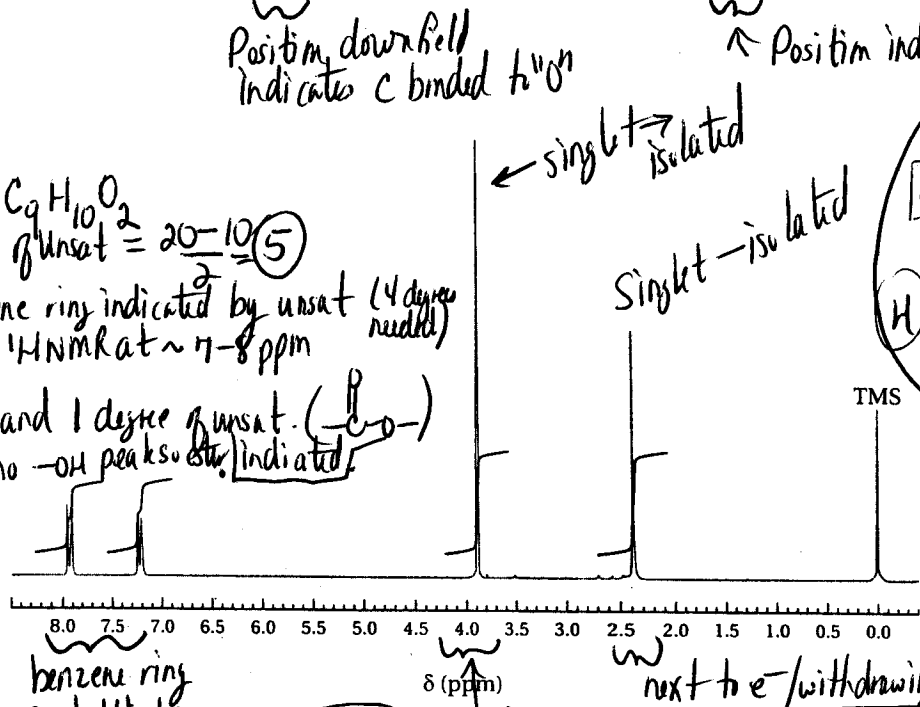 Position downfield
indicates C bonded to "O"
↑ Position ind
← singlet → isolated
C9H10O2
of unsat = 20-10/2 = 5
ne ring indicated by unsat (4 degrees needed)
¹HNMR at ~ 7-8 ppm
Singlet - isolated
H
and 1 degree of unsat. (-C(=O)-O-)
no -OH peak so ester indicated.
TMS
8.0 7.5 7.0 6.5 6.0 5.5 5.0 4.5 4.0 3.5 3.0 2.5 2.0 1.5 1.0 0.5 0.0
δ (ppm)
benzene ring
next to e⁻/withdrawin